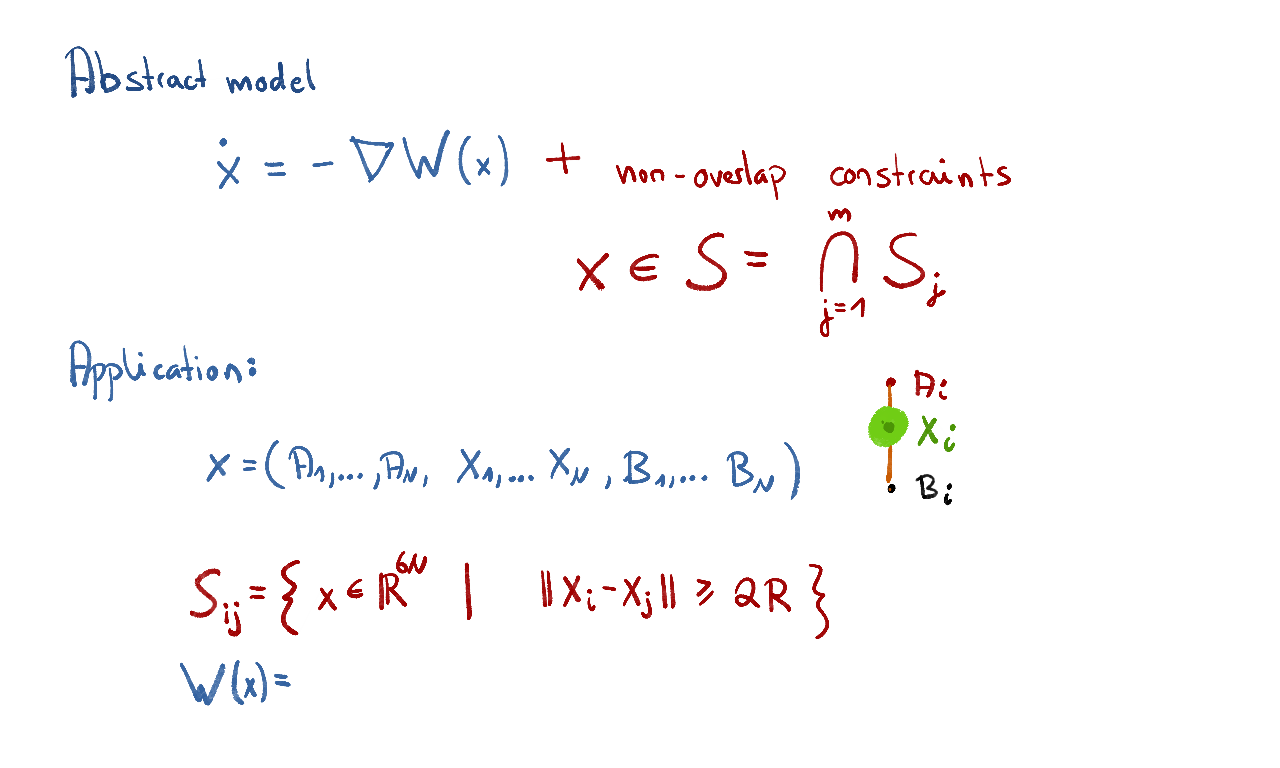 Abstract model
ẋ = - ∇W(x) + non-overlap constraints
x ∈ S = ⋂_{j=1}^{m} S_j
Application:
A_i
X_i
x = (A_1,..., A_N, X_1,... X_N, B_1,... B_N)
B_i
S_ij = { x ∈ ℝ^{6N} | ||X_i - X_j|| ≥ 2R }
W(x) =